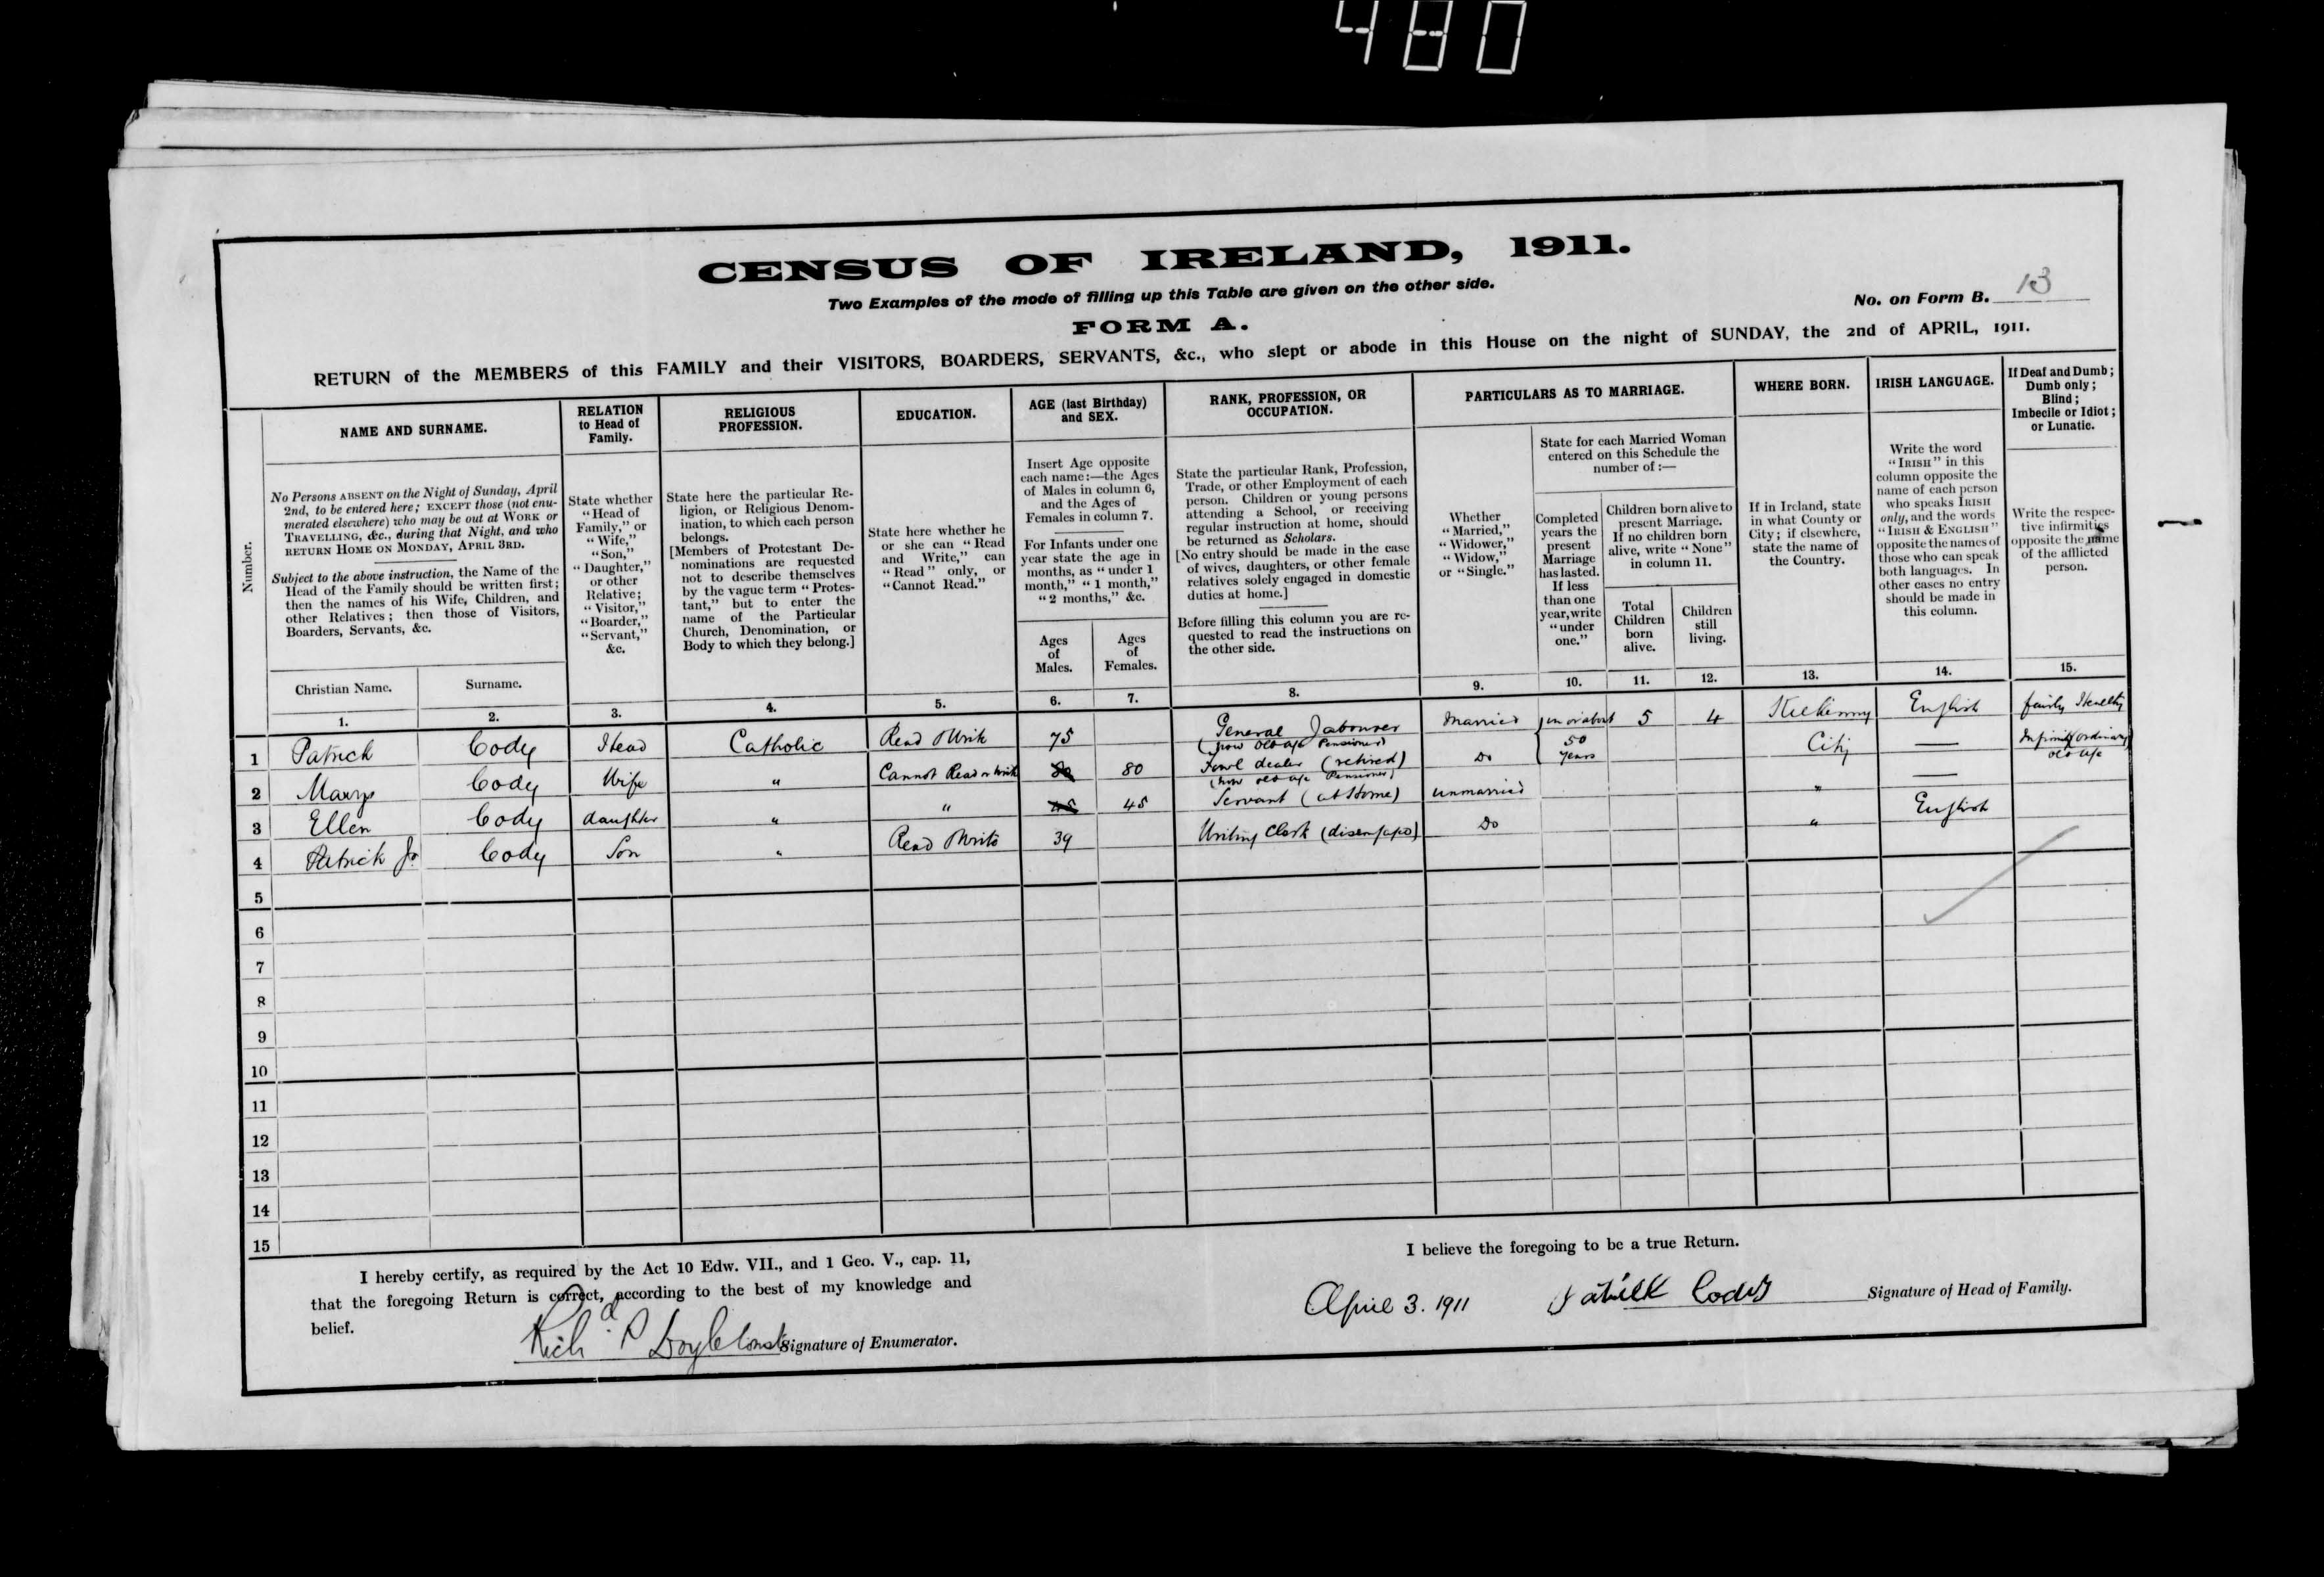 480
CENSUS OF IRELAND, 1911.
Two Examples of the mode of filling up this Table are given on the other side.
No. on Form B. 13
FORM A.
RETURN of the MEMBERS of this FAMILY and their VISITORS, BOARDERS, SERVANTS, &c., who slept or abode in this House on the night of SUNDAY, the 2nd of APRIL, 1911.
Number.
NAME AND SURNAME.
No Persons ABSENT on the Night of Sunday, April
2nd, to be entered here; EXCEPT those (not enu-
merated elsewhere) who may be out at WORK or
TRAVELLING, &c., during that Night, and who
RETURN HOME ON MONDAY, APRIL 3RD.
Subject to the above instruction, the Name of the
Head of the Family should be written first;
then the names of his Wife, Children, and
other Relatives; then those of Visitors,
Boarders, Servants, &c.
Christian Name.
Surname.
1.
2.
RELATION
to Head of
Family.
State whether
"Head of
Family," or
"Wife,"
"Son,"
"Daughter,"
or other
Relative;
"Visitor,"
"Boarder,"
"Servant,"
&c.
3.
RELIGIOUS
PROFESSION.
State here the particular Re-
ligion, or Religious Denom-
ination, to which each person
belongs.
[Members of Protestant De-
nominations are requested
not to describe themselves
by the vague term "Protes-
tant," but to enter the
name of the Particular
Church, Denomination, or
Body to which they belong.]
4.
EDUCATION.
State here whether he
or she can "Read
and Write," can
"Read" only, or
"Cannot Read."
5.
AGE (last Birthday)
and SEX.
Insert Age opposite
each name:—the Ages
of Males in column 6,
and the Ages of
Females in column 7.
For Infants under one
year state the age in
months, as "under 1
month," "1 month,"
"2 months," &c.
Ages
of
Males.
Ages
of
Females.
6.
7.
RANK, PROFESSION, OR
OCCUPATION.
State the particular Rank, Profession,
Trade, or other Employment of each
person. Children or young persons
attending a School, or receiving
regular instruction at home, should
be returned as Scholars.
[No entry should be made in the case
of wives, daughters, or other female
relatives solely engaged in domestic
duties at home.]
Before filling this column you are re-
quested to read the instructions on
the other side.
8.
PARTICULARS AS TO MARRIAGE.
Whether
"Married,"
"Widower,"
"Widow,"
or "Single."
9.
State for each Married Woman
entered on this Schedule the
number of:—
Completed
years the
present
Marriage
has lasted.
If less
than one
year, write
"under
one."
10.
Children born alive to
present Marriage.
If no children born
alive, write "None"
in column 11.
Total
Children
born
alive.
11.
Children
still
living.
12.
WHERE BORN.
If in Ireland, state
in what County or
City; if elsewhere,
state the name of
the Country.
13.
IRISH LANGUAGE.
Write the word
"IRISH" in this
column opposite the
name of each person
who speaks IRISH
only, and the words
"IRISH & ENGLISH"
opposite the names of
those who can speak
both languages. In
other cases no entry
should be made in
this column.
14.
If Deaf and Dumb;
Dumb only;
Blind;
Imbecile or Idiot;
or Lunatic.
Write the respec-
tive infirmities
opposite the name
of the afflicted
person.
15.
1 Patrick Cody Head Catholic Read & Write 75 General Labourer (now old age Pensioner) Married 5 4 Kilkenny English fairly Healthy
2 Mary Cody Wife " Cannot Read or Write 80 80 Fowl dealer (retired) (now old age Pensioner) Do in or about 50 years City — Infirmity (ordinary) old age
3 Ellen Cody daughter " " 45 45 Servant (at Home) unmarried " —
4 Patrick Jr. Cody Son " Read & Write 39 Writing Clerk (disengaged) Do " English
5
6
7
8
9
10
11
12
13
14
15
I hereby certify, as required by the Act 10 Edw. VII., and 1 Geo. V., cap. 11,
that the foregoing Return is correct, according to the best of my knowledge and
belief.
Richd. P Doyle Const. Signature of Enumerator.
I believe the foregoing to be a true Return.
April 3. 1911 Patrick Cody Signature of Head of Family.